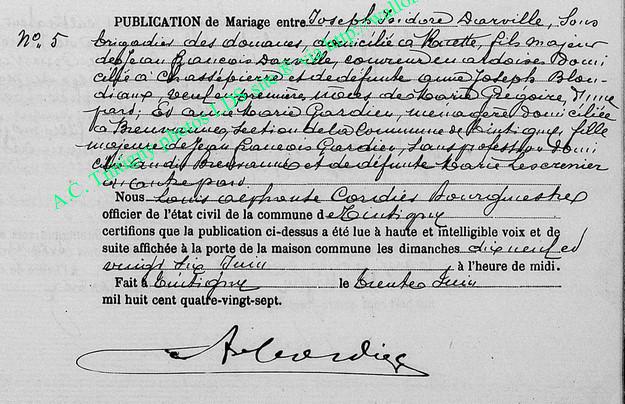 PUBLICATION de Mariage entre Joseph Isidore Darville, Sous
N° 5 brigadier des douanes, domicilié à Muette, fils majeur
de Jean François Darville, couvreur en ardoises domi
cilié à Chassepierre et de défunte Anne Joseph Blon
diaux veuf en premières noces de Marie Grégoire, d'une
part; Et Anne Marie Gardien, menagère domiciliée
à Breuvanne, section de la Commune de Tintigny, fille
majeure de Jean François Gardien, sans profession domi
cilié audit Breuvanne et de défunte Marie Lescrenier
d'autre part.
Nous Louis Alphonse Cordier Bourgmestre
officier de l'état civil de la commune de Tintigny
certifions que la publication ci-dessus a été lue à haute et intelligible voix et de
suite affichée à la porte de la maison commune les dimanches dix neuf et
vingt six Juin à l'heure de midi.
Fait à Tintigny le trente Juin
mil huit cent quatre-vingt-sept.
A.C. Tintigny photos LDS site & via http://wallon